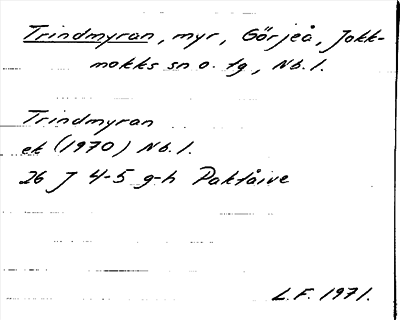 Trindmyran, myr, Görjeå, Jokk-
mokks sn o. tg, Nb. l.
Trindmyran
ek (1970) Nb. l.
26 J 4-5 g-h Paktåive
L.F. 1971.